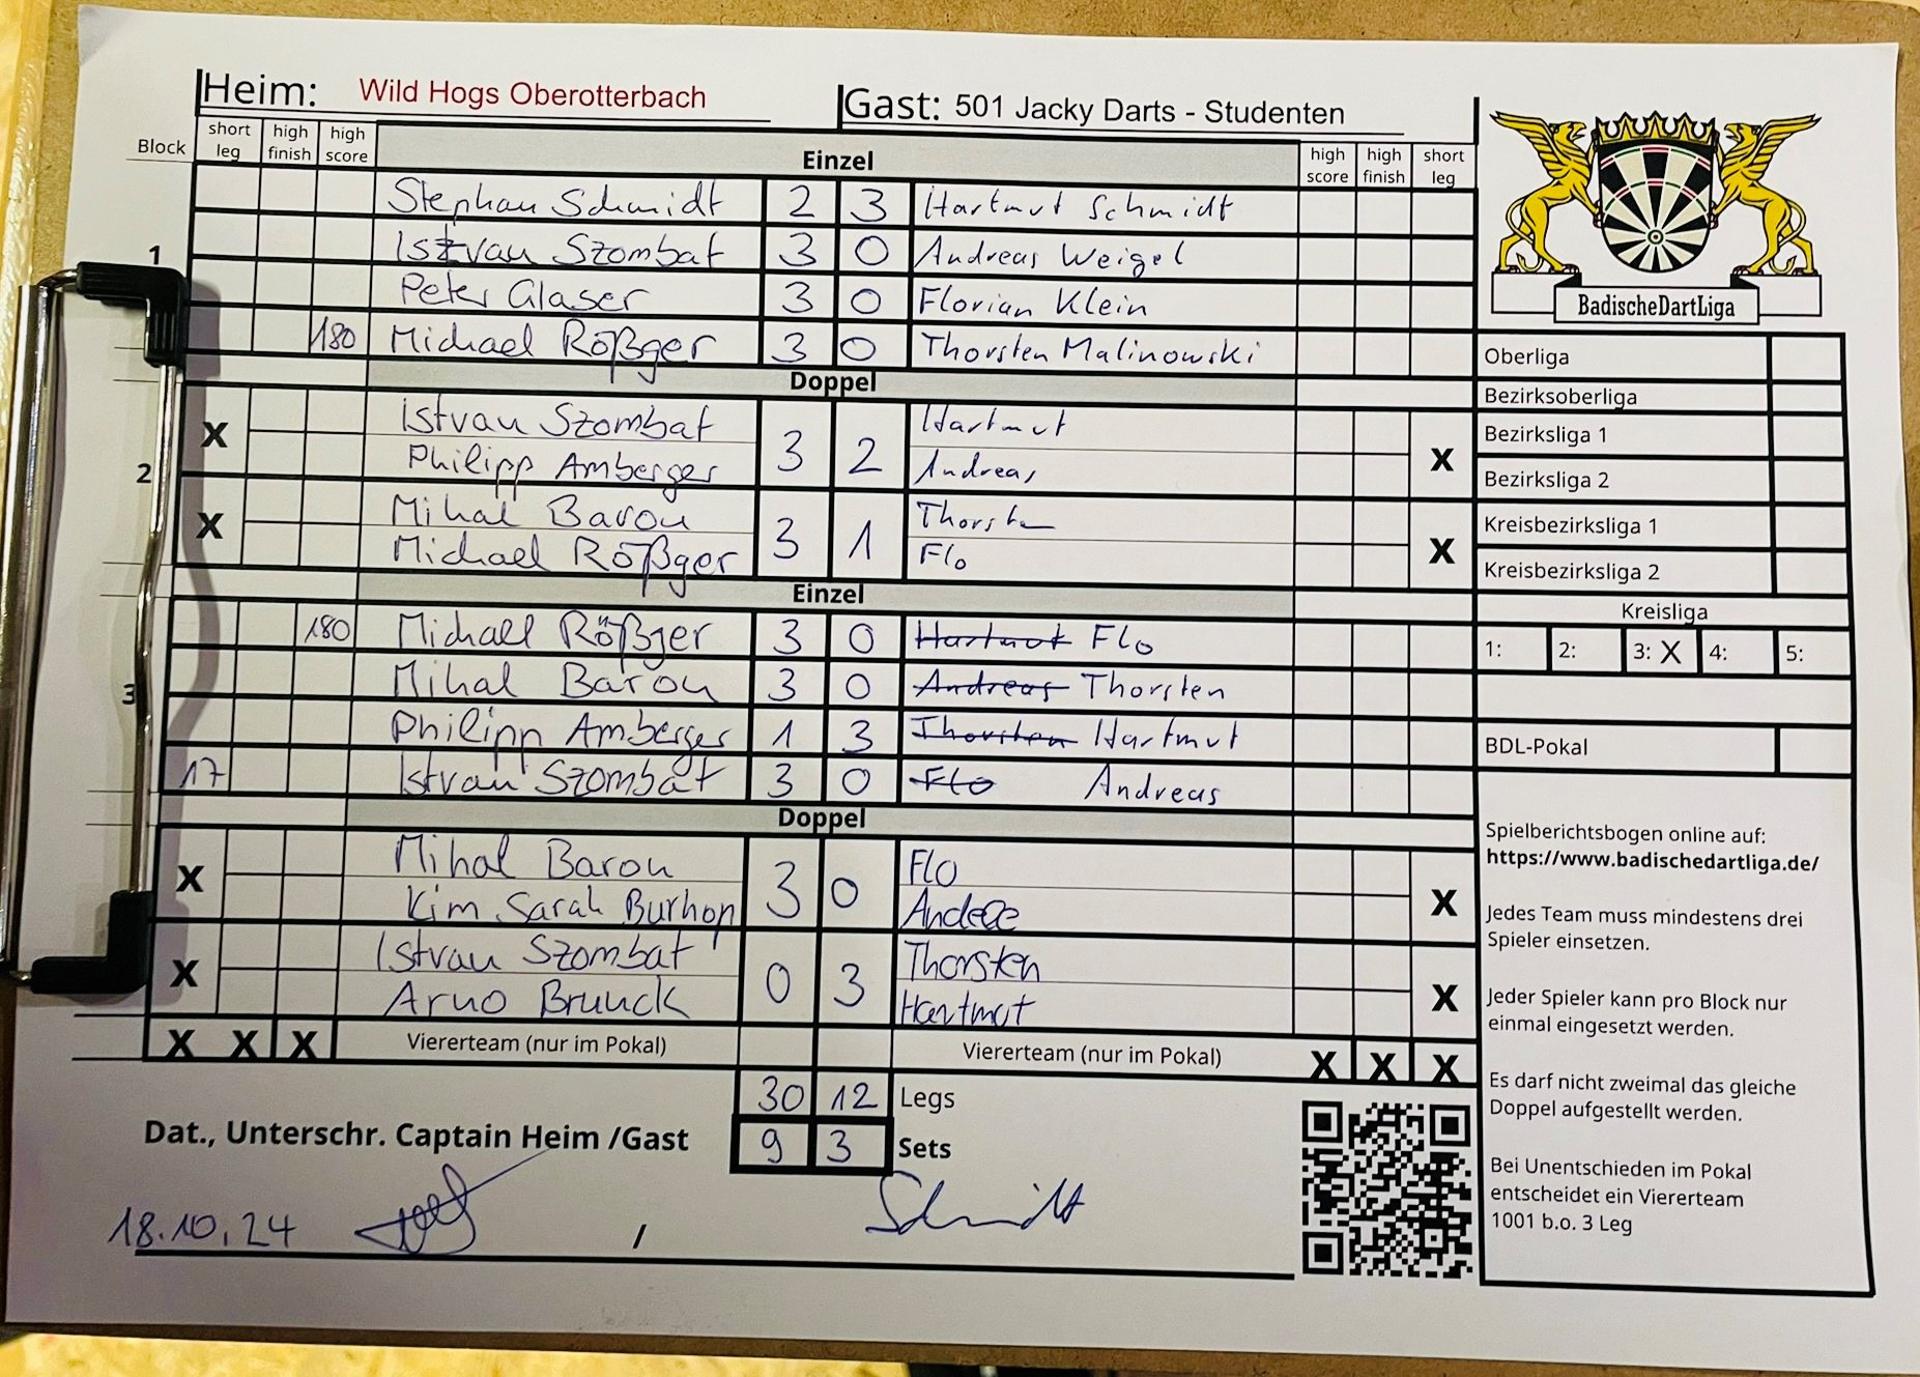 Heim: Wild Hogs Oberotterbach Gast: 501 Jacky Darts - Studenten
Block short leg high finish high score Einzel high score high finish short leg
Stephan Schmidt 2 3 Hartmut Schmidt
1 Istvan Szombat 3 0 Andreas Weigel
Peter Glaser 3 0 Florian Klein
180 Michael Rößger 3 0 Thorsten Malinowski
Doppel
X Istvan Szombat 3 2 Hartmut X
Philipp Amberger Andreas
2
X Mihal Baron 3 1 Thorsten X
Michael Rößger Flo
Einzel
180 Michael Rößger 3 0 Hartmut Flo
Mihal Baron 3 0 Andreas Thorsten
3 Philipp Amberger 1 3 Thorsten Hartmut
17 Istvan Szombat 3 0 Flo Andreas
Doppel
X Mihal Baron 3 0 Flo X
Kim Sarah Burhop
X Istvan Szombat 0 3 Thorsten X
Arno Brunck Hartmut
X X X Viererteam (nur im Pokal) Viererteam (nur im Pokal) X X X
30 12 Legs
Dat., Unterschr. Captain Heim /Gast 9 3 Sets
18.10.24 / Schmidt
BadischeDartLiga
Oberliga
Bezirksoberliga
Bezirksliga 1
Bezirksliga 2
Kreisbezirksliga 1
Kreisbezirksliga 2
Kreisliga
1: 2: 3: X 4: 5:
BDL-Pokal
Spielberichtsbogen online auf:
https://www.badischedartliga.de/
Jedes Team muss mindestens drei
Spieler einsetzen.
Jeder Spieler kann pro Block nur
einmal eingesetzt werden.
Es darf nicht zweimal das gleiche
Doppel aufgestellt werden.
Bei Unentschieden im Pokal
entscheidet ein Viererteam
1001 b.o. 3 Leg